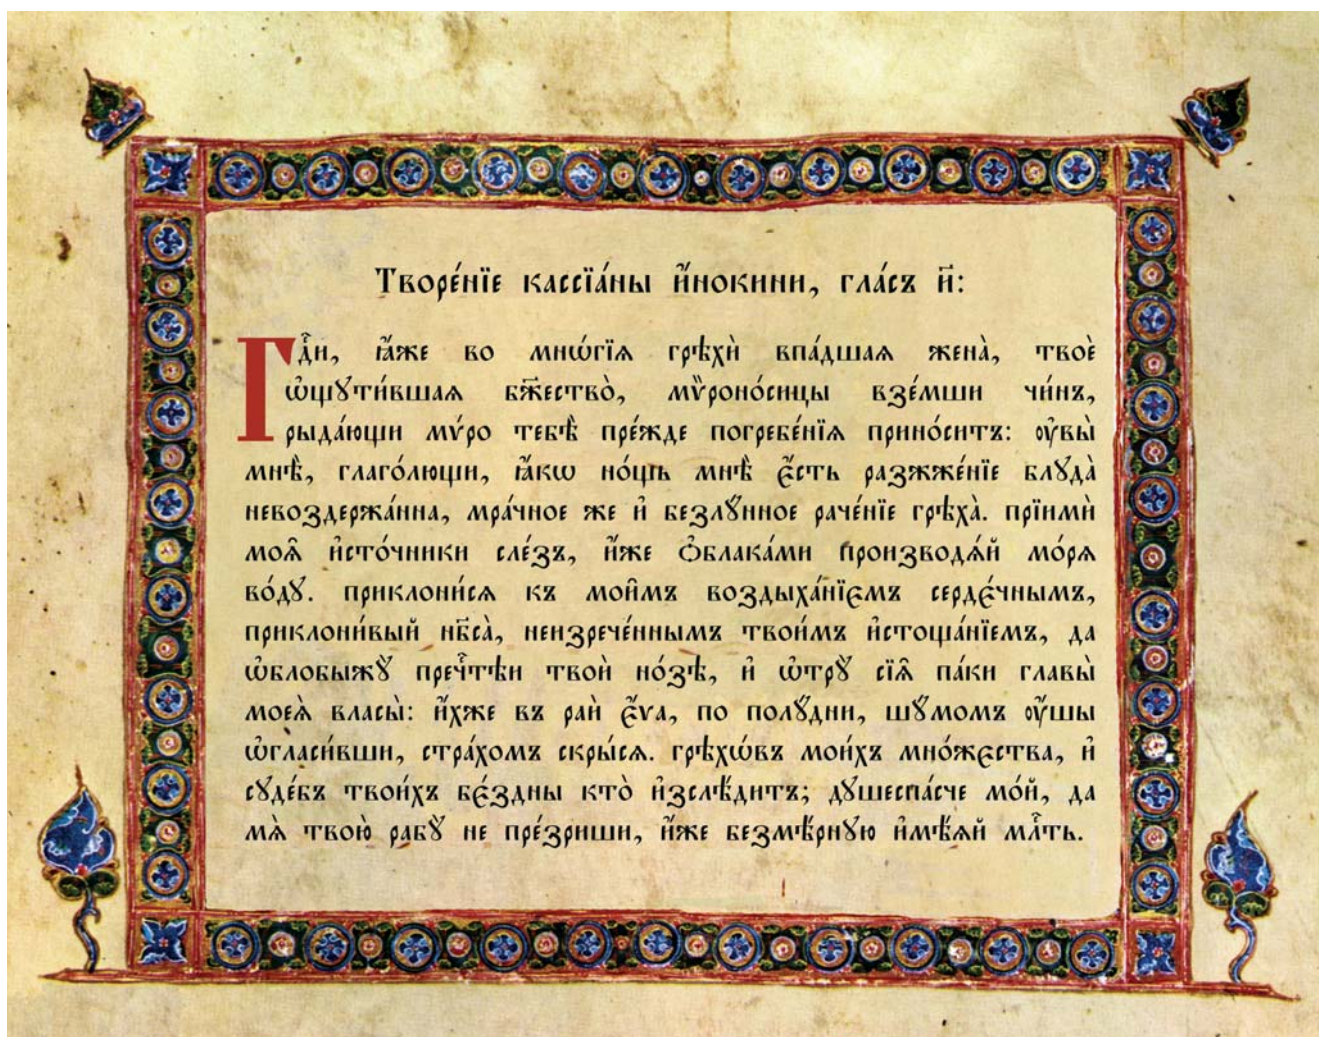 Творе́нїе кассїа́ны и҆́нокини, гла́съ и҃:
Гдⷭ҇и, ꙗ҆́же во мнѡ́гїѧ грѣхѝ впа́дшаѧ жена̀, твоѐ
ѡ҆щꙋти́вшаѧ бж҃ество̀, мѷроно́сицы взе́мши чи́нъ,
рыда́ющи мѵ́ро тебѣ̀ пре́жде погребе́нїѧ прино́ситъ: оу҆вы̀
мнѣ̀, глаго́лющи, ꙗ҆́кѡ но́щь мнѣ̀ є҆́сть разжже́нїе блꙋда̀
невоздержа́нна, мра́чное же и҆ безлꙋ́нное раче́нїе грѣха̀. прїимѝ
моѧ̑ и҆сто́чники сле́зъ, и҆́же ѻ҆́блаками производѧ́й мо́рѧ
во́дꙋ. приклони́сѧ къ мои̑мъ воздыха́нїємъ серде́чнымъ,
приклони́вый нб҃са̀, неизрече́ннымъ твои́мъ и҆стоща́нїемъ, да
ѡ҆блобыжꙋ̀ пречⷭ҇тѣи твоѝ но́зѣ, и҆ ѡ҆трꙋ̀ сїѧ̑ па́ки главы̀
моеѧ̀ власы̀: и҆́хже въ раѝ є҆́ѵа, по полꙋ́дни, шꙋ́момъ оу҆́шы
ѡ҆гласи́вши, стра́хомъ скры́сѧ. грѣхѡ́въ мои́хъ мно́жєства, и҆
сꙋде́бъ твои́хъ бє́здны кто̀ и҆зслѣ́дитъ; дꙋшеспа́сче мо́й, да
мѧ̀ твою̀ рабꙋ̀ не пре́зриши, и҆́же безмѣ́рнꙋю и҆мѣ́ѧй млⷭ҇ть.